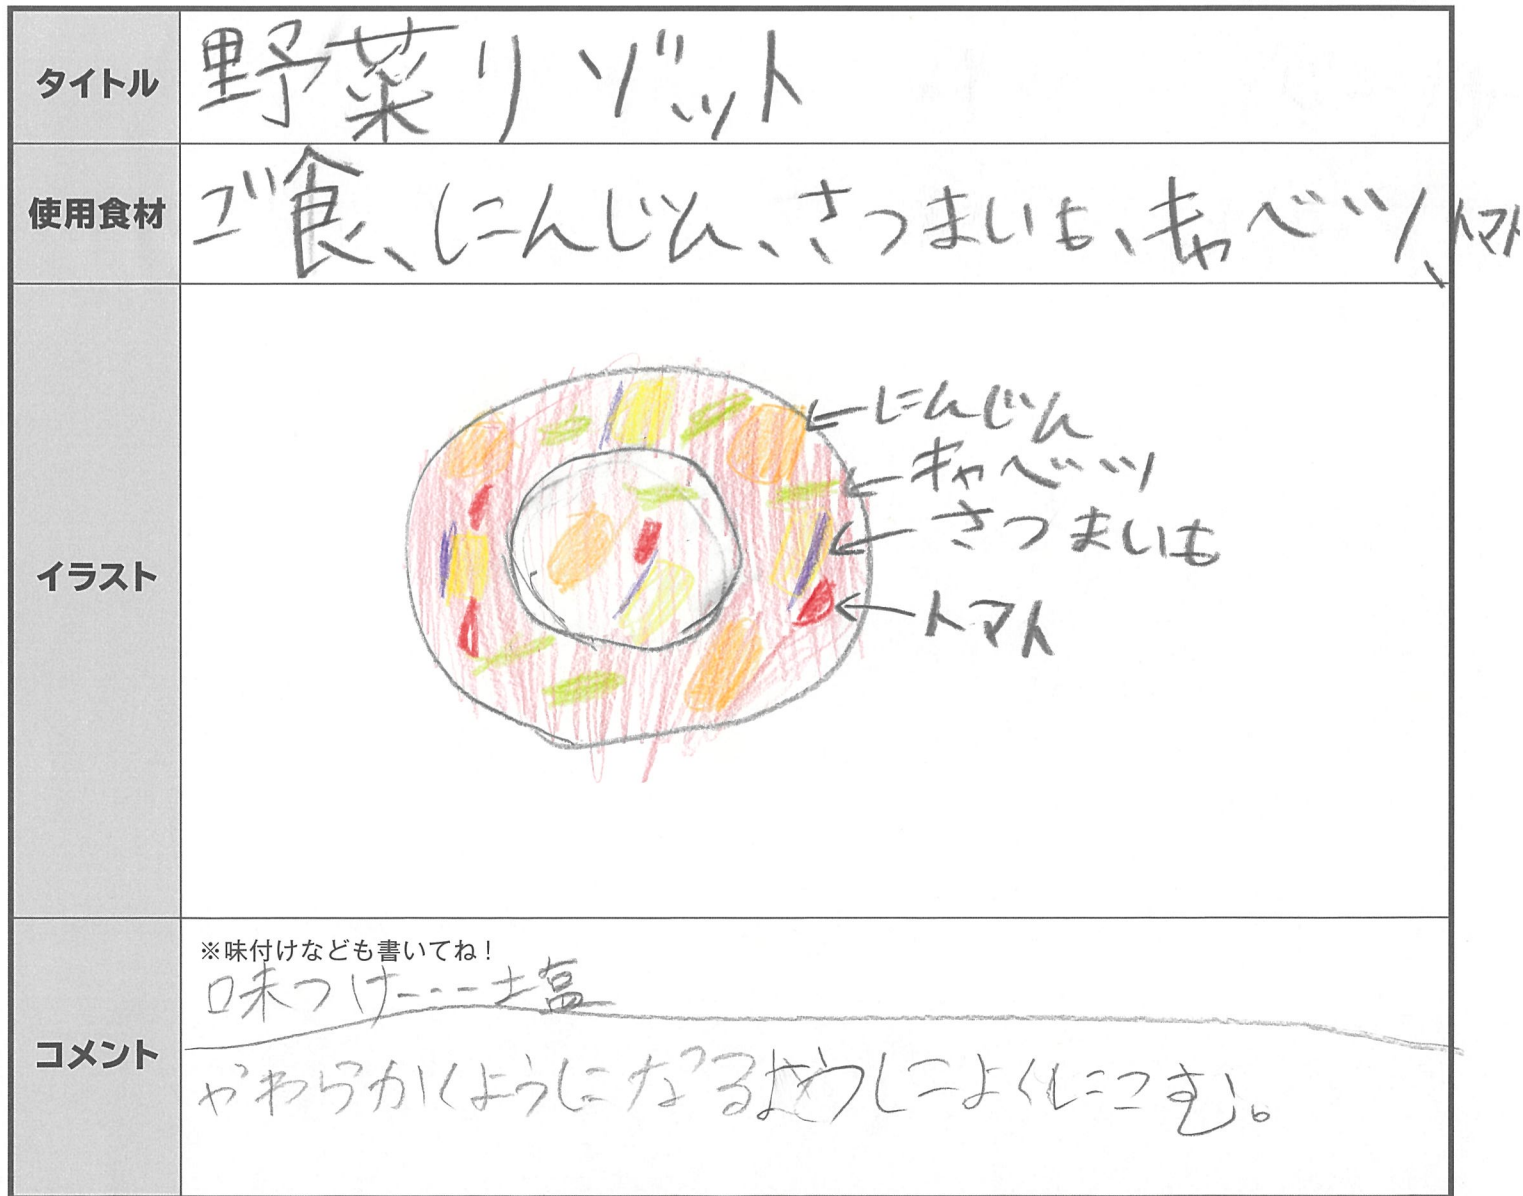 タイトル
野菜リゾット
使用食材
ゴ食、にんじん、さつまいも、キャベツ、トマト
イラスト
にんじん
キャベツ
さつまいも
トマト
コメント
※味付けなども書いてね！
味つけ---塩
やわらかくようになるようしによくにこむ。